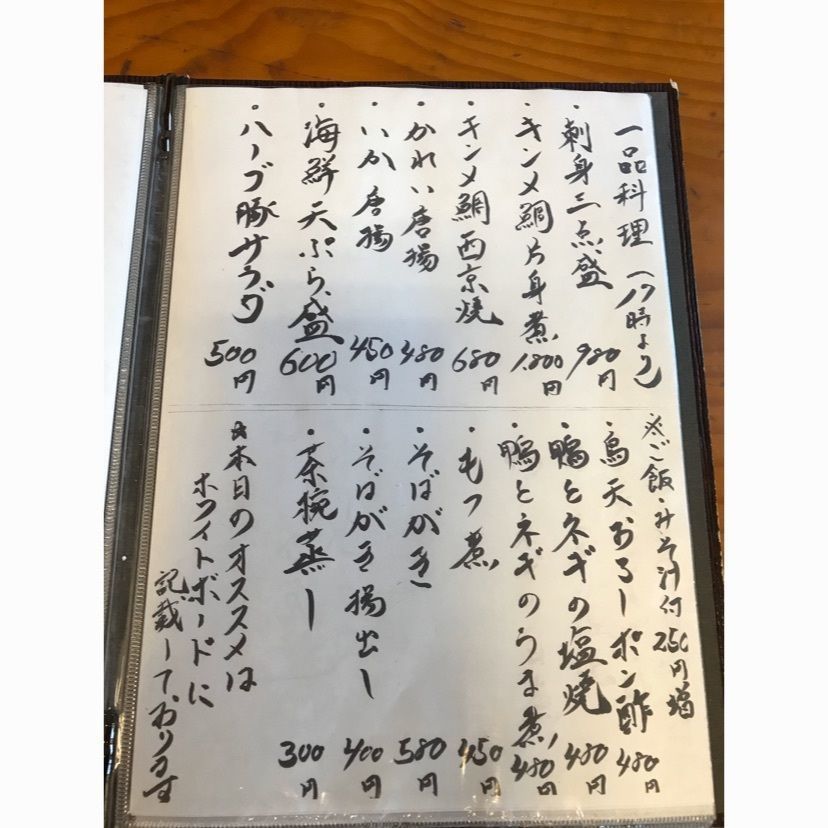 一品料理（17時より）
・刺身三点盛 980円
・キンメ鯛片身煮 1,800円
・キンメ鯛西京焼 680円
・かれい唐揚 480円
・いか唐揚 450円
・海鮮天ぷら盛 600円
・ハーブ豚サラダ 500円
※ご飯・みそ汁付 250円増
・鳥天おろしポン酢 480円
・鴨とネギの塩焼 480円
・鴨とネギのうま煮 480円
・もつ煮 450円
・そばがき 580円
・そばがき揚出し 400円
・茶碗蒸し 300円
☆本日のオススメは
ホワイトボードに
記載しております